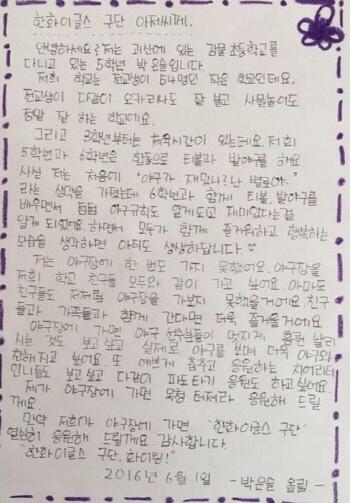 한화이글스 구단 아저씨께.
안녕하세요? 저는 괴산에 있는 감물초등학교를
다니고 있는 5학년 박은솔입니다.
저희 학교는 전교생이 54명인 작은 학교인데요,
전교생이 다같이 오카리나도 잘 불고 사물놀이도
정말 잘 하는 학교에요.
그리고 3학년부터는 체육시간이 있는데요. 저희
5학년과 6학년은 합동으로 티볼과 발야구를 해요.
사실 저는 처음에 "야구가 재밌나? 난 별로야."
라는 생각을 가졌는데 6학년과 함께 티볼, 발야구를
배우면서 점점 야구규칙도 알게되고 재미있다는걸
알게 되었어요. 하면서 모두가 함께 즐거워하고 행복하는
모습을 생각하면 아직도 생생하답니다.
저는 야구장에 한 번도 가지 못했어요. 야구장을
저희 학교 친구들 모두와 같이 가고 싶어요. 아마도
친구들도 저처럼 야구장을 가보지 못했을거에요. 친구
들과 가족들과 함께 간다면 더욱 즐거울거에요.
야구장에 가면 야구 선수분들이 멋지게 홈런 날리
시는 것도 보고 싶고 실제로 야구를 보며 더욱 야구와
친해지고 싶어요. 또 예쁘게 춤추고 응원하는 치어리더
언니들도 보고 싶고 다같이 파도타기 응원도 하고싶어요.
제가 야구장에 가면 목청 터져라 응원해 드릴
게요.
만약 저희가 야구장에 가면 '한화이글스 구단'
열심히 응원해 드릴게요. 감사합니다.
"한화이글스 구단, 화이팅!"
2016년 6월 1일 -박은솔 올림-